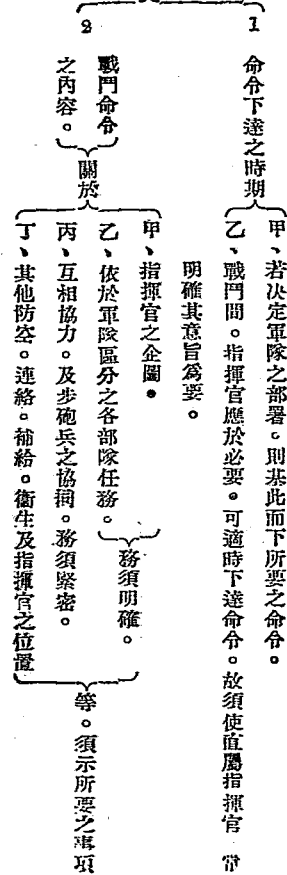 1
命令下達之時期
甲、若決定軍隊之部署。則基此而下所要之命令。
乙、戰鬥間。指揮官應於必要。可適時下達命令。故須使直屬指揮官 常
明確其意旨爲要。
2
戰鬥命令
之內容。
關於
甲、指揮官之企圖。
乙、依於軍隊區分之各部隊任務。
務須明確。
丙、互相協力。及步砲兵之協同。務須緊密。
丁、其他防空。連絡。補給。衛生及指揮官之位置
等。須示所要之事項